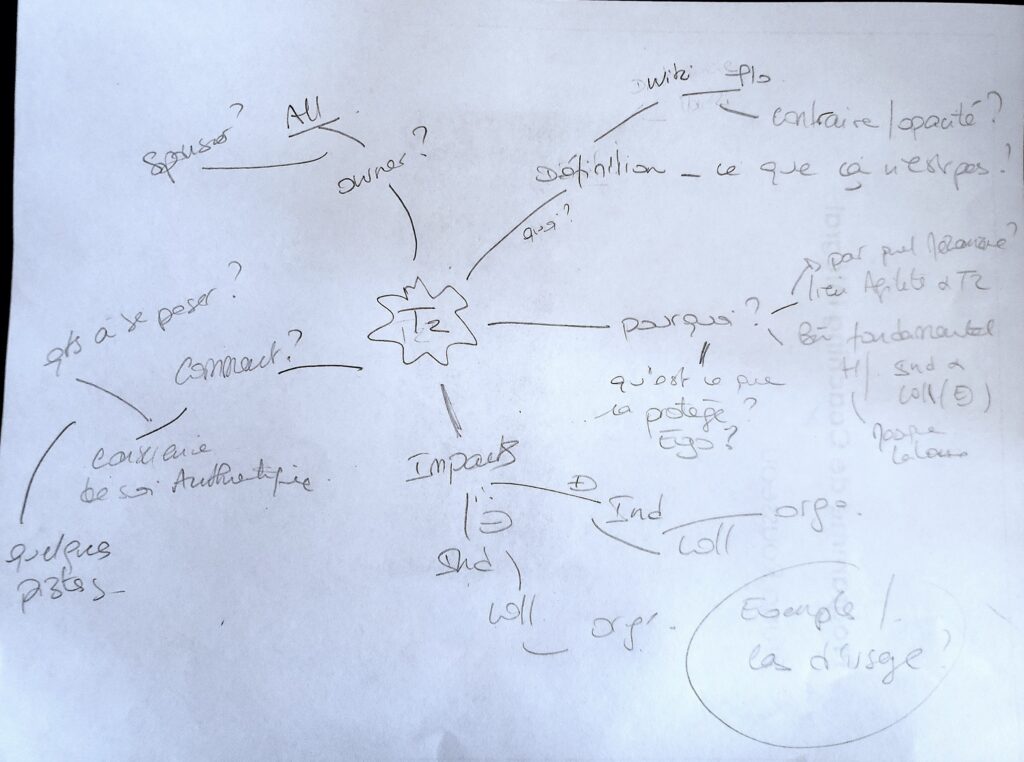 Wiki
contraire / opacité ?
Définition – ce que ça n'est pas !
quoi ?
All
Sponsor ?
owner ?
Tz
pourquoi ?
par quel
lien Agilité & Tz
fondamental
H / Ind &
Coll (
qu'est ce que
ça protège ?
Ego ?
qts à se poser ?
Comment ?
conscience
besoin Authentique.
quelques
pistes
Impacts
Ind
Coll
orga.
Ind
Coll
orga.
Exemple /
Cas d'usage ?